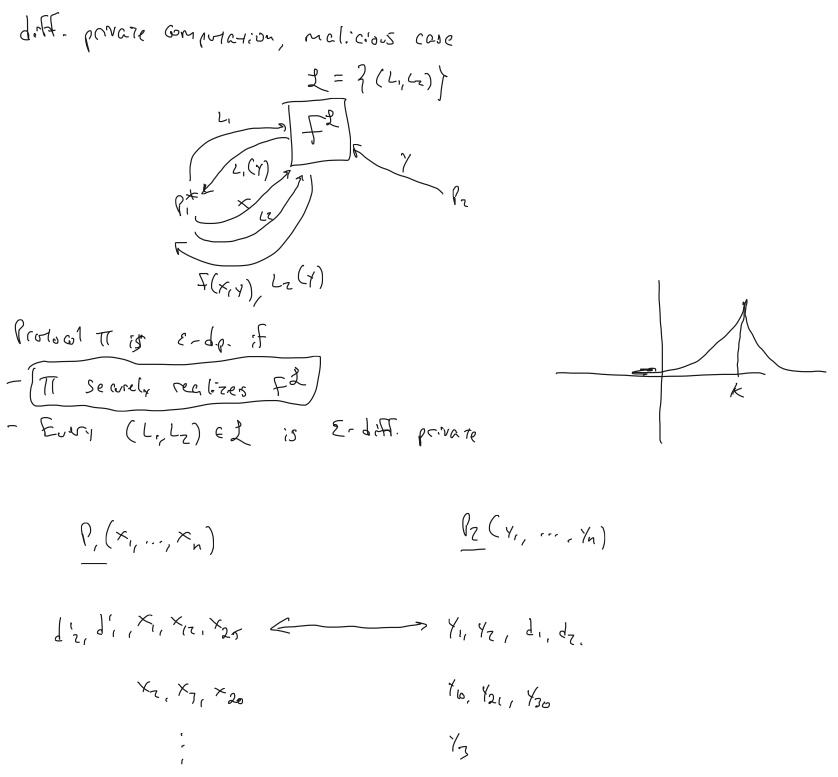 diff. private computation, malicious case
ℒ = { (L₁, L₂) }
L₁
F^ℒ
L₁(y)
y
P₁*
x
L₂
P₂
f(x,y), L₂(y)
Protocol π is ε-d.p. if
- π securely realizes F^ℒ
- Every (L₁, L₂) ∈ ℒ is ε-diff. private
K
P₁ (x₁, ..., xₙ)
P₂ (y₁, ..., yₙ)
d'₂, d'₁, x₁, x₁₂, x₂₅ ⟷ y₁, y₂, d₁, d₂.
x₂, x₇, x₂₀
y₁₀, y₂₁, y₃₀
⋮
y₃